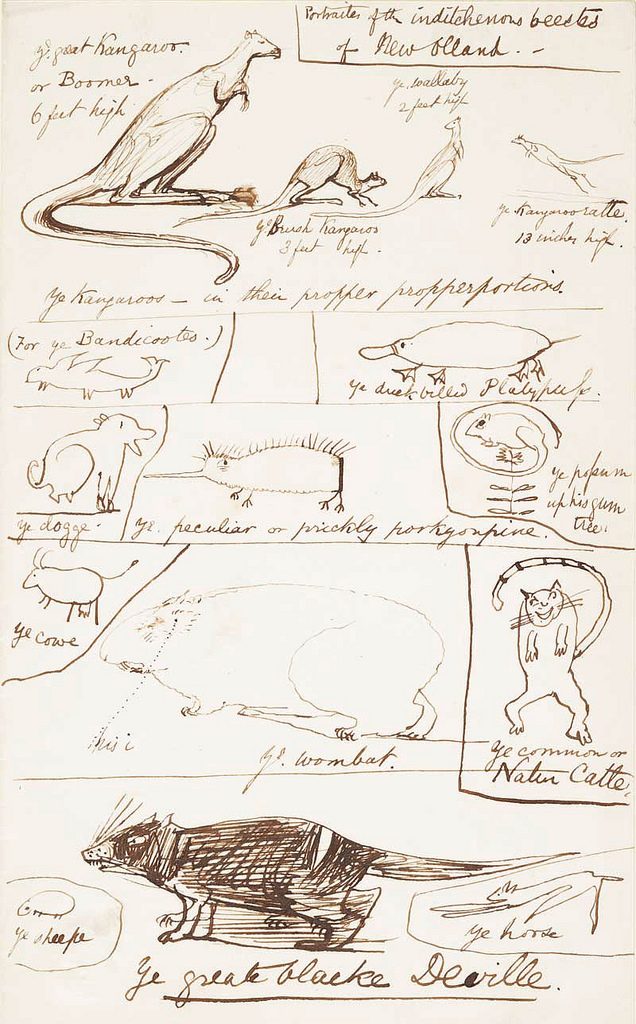 Portraites of th inditchenous beestes
of New Olland. -
ye great Kangaroo.
or Boomer -
6 feet high
ye wallaby
2 feet high
ye Brush Kangaroo
3 feet high.
ye Kangarooratte.
13 inches high.
ye Kangaroos — in their propper propperportions.
(For ye Bandicootes.)
ye duckbilled Platypuss.
ye dogge.
ye. peculiar or prickly porkyonpine.
ye possum
up his gum
tree.
ye cowe
his i
ye. wombat.
ye common or
Natur Catte.
ye sheepe
ye horse
Ye greate blacke Deville.